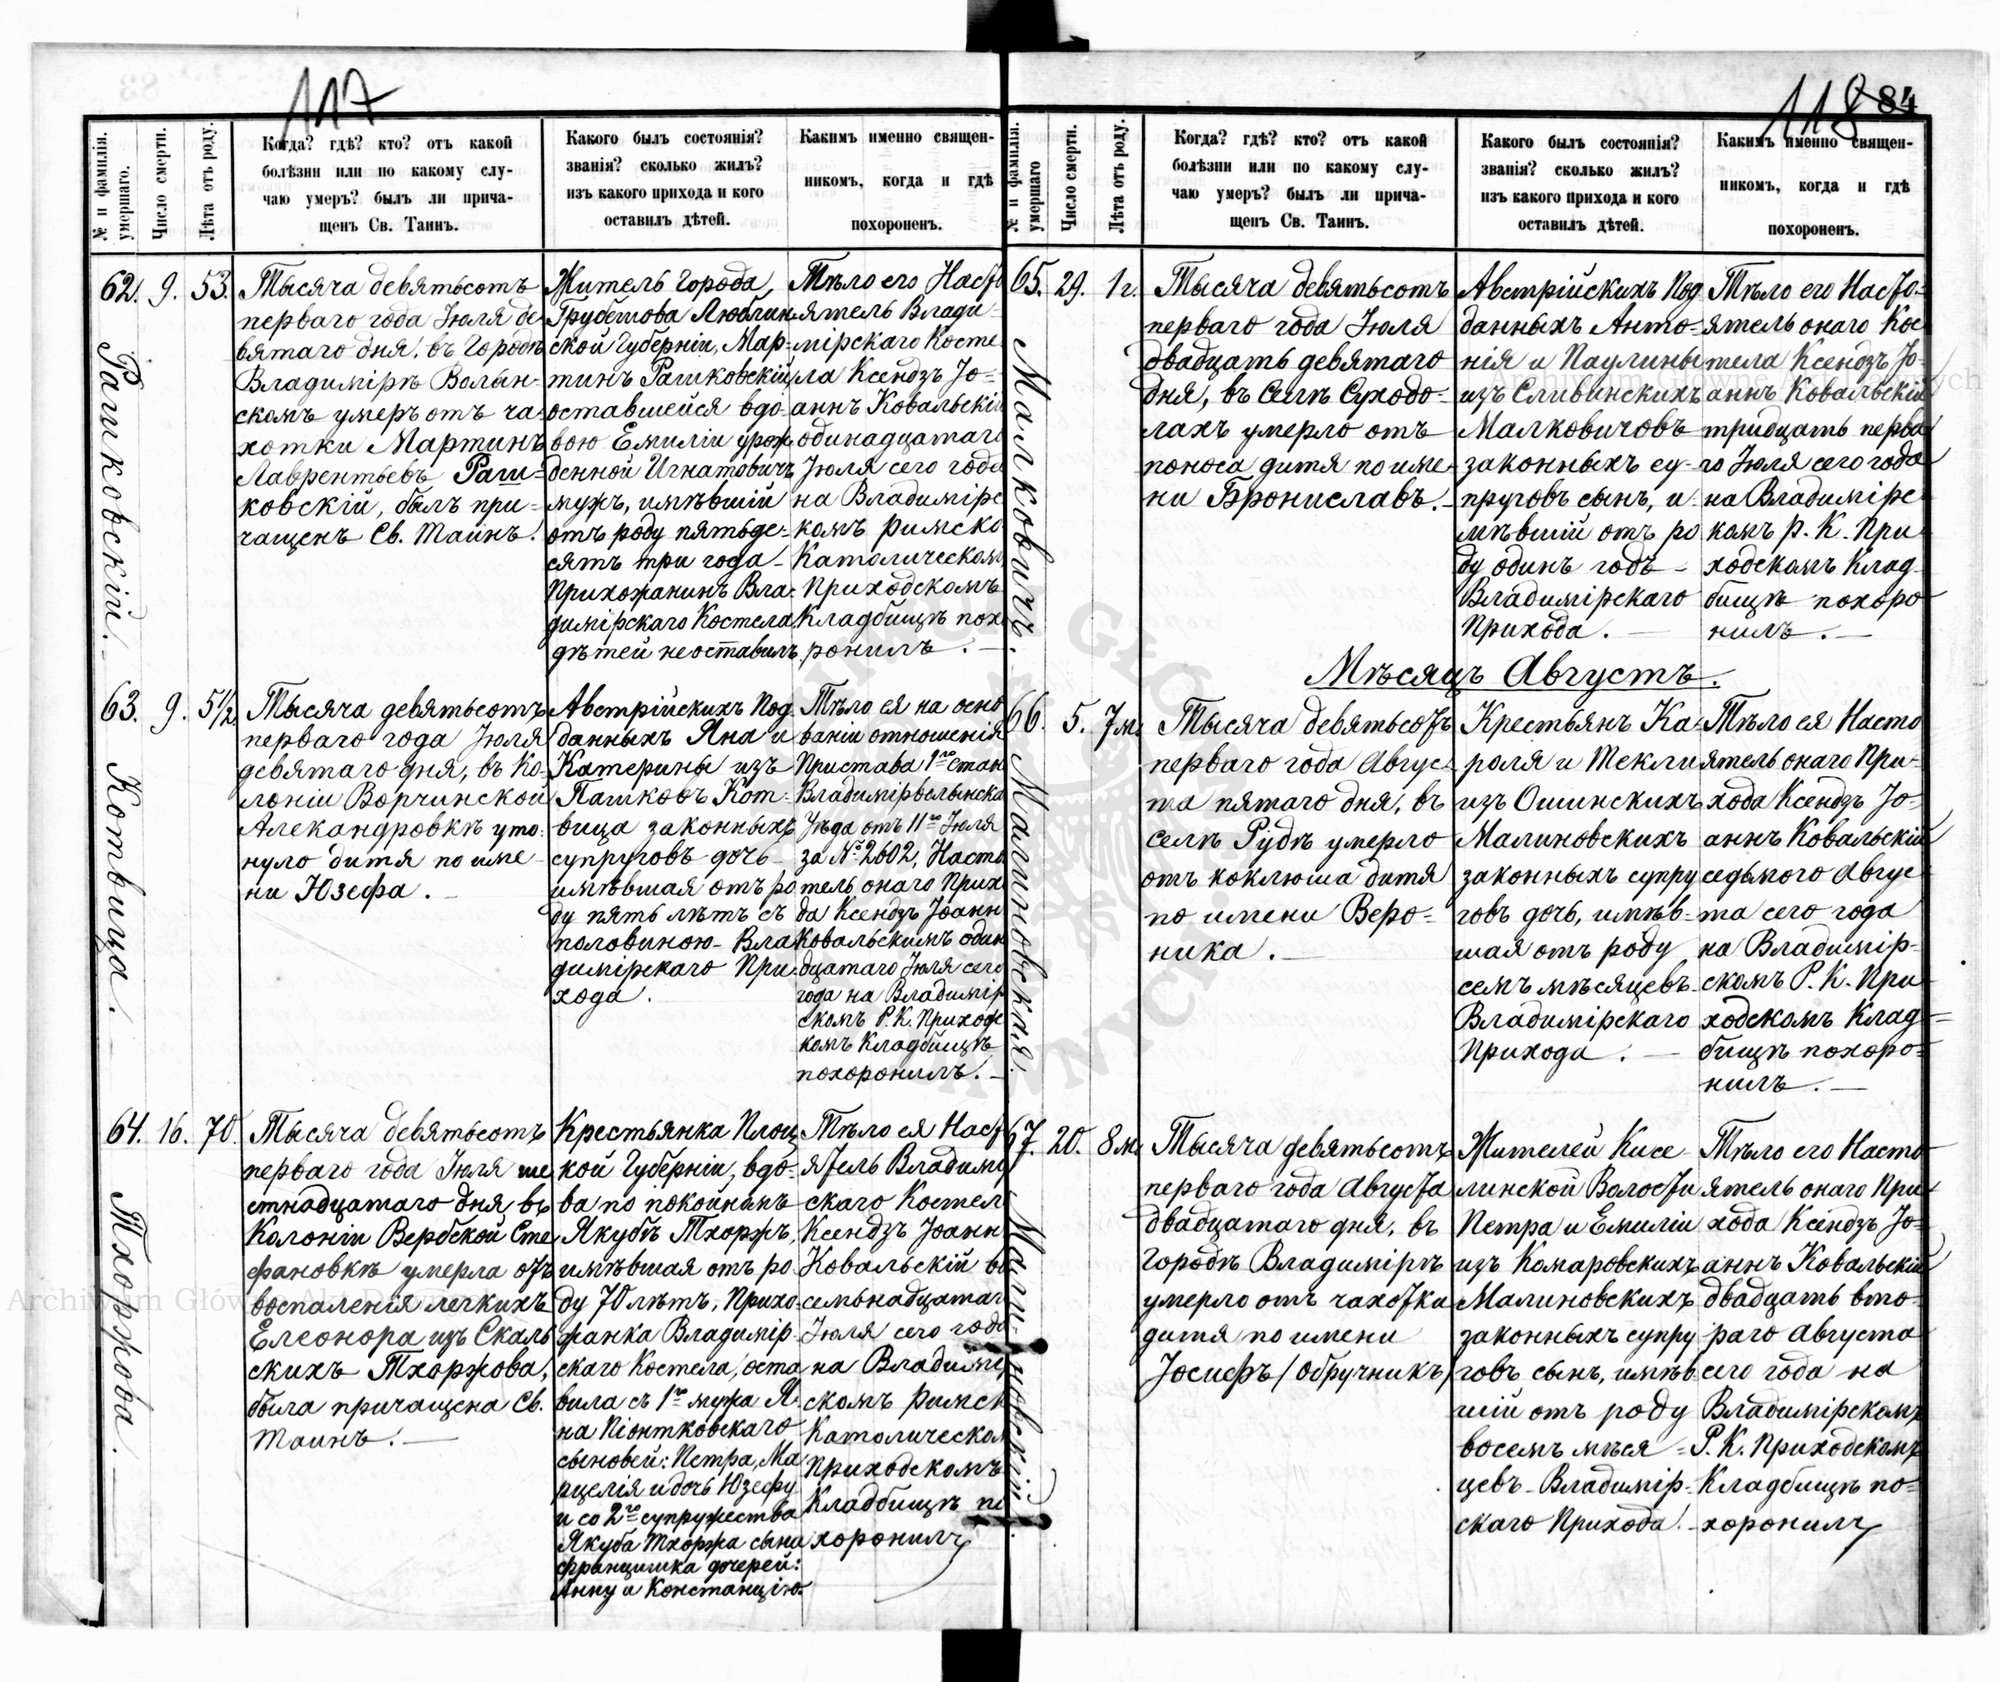 117
№ и фамилія.
умершаго.
Число смерти.
Лѣта отъ роду.
Когда? гдѣ? кто? отъ какой
болѣзни или по какому слу-
чаю умеръ? былъ ли прича-
щенъ Св. Таинъ.
Какого былъ состоянія?
званія? сколько жилъ?
изъ какого прихода и кого
оставилъ дѣтей.
Какимъ именно священ-
никомъ, когда и гдѣ
похороненъ.
62.
Рашковскій.
9.
53.
Тысяча девятьсотъ
перваго года Іюля де
вятаго дня, въ Городѣ
Владимірѣ Волын-
скомъ умеръ отъ ча
хотки Мартинъ
Лаврентьевъ Раш-
ковскій, былъ при-
чащенъ Св. Таинъ.
Житель города
Грубешова Люблин
ской Губерніи, Мар-
тинъ Рашковскій,
оставшейся вдо
вою Емиліи урож
денной Игнатовичъ
мужъ, имѣвшій
отъ роду пятьде-
сятъ три года
Прихожанинъ Вла-
димірскаго Костела
дѣтей неоставилъ.
Тѣло его Насто
ятель Влади-
мірскаго Косте
ла Ксендзъ Іо-
аннъ Ковальскій
одинадцатаго
Іюля сего года
на Владимірс
комъ римско
Католическомъ
Приходскомъ
Кладбищѣ похо
ронилъ.
63.
Котвица.
9.
5½
Тысяча девятьсотъ
перваго года Іюля
девятаго дня, въ Ко-
лоніи Ворчинской
Александровкѣ уто-
нуло дитя по име
ни Юзефа.
Австрійскихъ Под
данныхъ Яна и
Катерины изъ
Пашковъ Кот-
вица законныхъ
супруговъ дочь
имѣвшая отъ ро
ду пять лѣтъ съ
половиною - Вла
димірскаго При-
хода.
Тѣло ея на осно
ваніи отношенія
Пристава 1го стан
Владимірволынска
Уѣзда отъ 11го Іюля
за № 2602, Насто
тель онаго Прих
да Ксендзъ Іоанн
Ковальскимъ один
дцатаго Іюля сего
года на Владимір
скомъ Р. К. Приходс
комъ Кладбищѣ
похоронилъ.
64.
Тхоржова.
16.
70.
Тысяча девятьсотъ
перваго года Іюля ше
стнадцатаго дня въ
Колоніи Вербской Сте
фановкѣ умерла отъ
воспаленія легкихъ
Елеонора изъ Скаль
скихъ Тхоржова,
была причащена Св.
Таинъ.
Крестьянка Плоц
кой Губерніи, вдо-
ва по покойнымъ
Якубѣ Тхоржъ,
имѣвшая отъ ро
ду 70 лѣтъ, Прихо
жанка Владимір
скаго Костела, оста
вила съ 1го мужа Я
на Піонтковскаго
сыновей: Петра, Ма
рцелія и дочь Юзефу
и со 2го супружества
Якуба Тхоржа сына
францишка дочерей:
Анну и Констанцію.
Тѣло ея Наст
ятель Владимі
скаго Костел
Ксендзъ Іоанн
Ковальскій во
семьнадцатаг
Іюля сего года
на Владимі
скомъ римск
Католическом
Приходскомъ
Кладбищѣ по
хоронилъ
118 84
№ и фамилія.
умершаго
Число смерти.
Лѣта отъ роду.
Когда? гдѣ? кто? отъ какой
болѣзни или по какому слу-
чаю умеръ? былъ ли прича-
щенъ Св. Таинъ.
Какого былъ состоянія?
званія? сколько жилъ?
изъ какого прихода и кого
оставилъ дѣтей.
Какимъ именно священ-
никомъ, когда и гдѣ
похороненъ.
65.
Малковичъ.
29.
1г.
Тысяча девятьсотъ
перваго года Іюля
двадцать девятаго
дня, въ Селѣ Суходо-
лахъ умерло отъ
поноса дитя по име
ни Брониславъ.
Австрійскихъ Под
данныхъ Анто-
нія и Паулины
изъ Сливинскихъ
Малковичовъ
законныхъ су-
пруговъ сынъ, и
мѣвшій отъ ро
ду одинъ годъ -
Владимірскаго
Прихода.
Тѣло его Насто-
ятель онаго Кос
тела Ксендзъ Іо-
аннъ Ковальскій
тридцать перва
го Іюля сего года
на Владимірс
комъ Р. К. При
ходскомъ Клад
бищѣ похоро
нилъ.
Мѣсяцъ Августъ.
66.
Малиновская.
5.
7м.
Тысяча девятьсотъ
перваго года Авгус
та пятаго дня, въ
селѣ Рудѣ умерло
отъ коклюша дитя
по имени Веро-
ника.
Крестьянъ Ка-
роля и Текли
изъ Ошинскихъ
Малиновскихъ
законныхъ супру
говъ дочь, имѣв-
шая отъ роду
семъ мѣсяцевъ
Владимірскаго
Прихода.
Тѣло ея Насто
ятель онаго При-
хода Ксендзъ Іо-
аннъ Ковальскій
седьмого Авгус
та сего года
на Владимір-
скомъ Р. К. При
ходскомъ Клад-
бищѣ похоро-
нилъ.
67.
Малиновскій.
20.
8м.
Тысяча девятьсотъ
перваго года Августа
двадцатаго дня, въ
Городѣ Владимірѣ
умерло отъ чахотки
дитя по имени
Іосифъ (обручникъ)
Жителей Кисе
линской Волости
Петра и Емиліи
изъ Комаровскихъ
Малиновскихъ
законныхъ супру
говъ сынъ, имѣв
шій отъ роду
восемъ мѣся-
цевъ - Владимір-
скаго Прихода.
Тѣло его Насто
ятель онаго При
хода Ксендзъ Іо-
аннъ Ковальскій
двадцать вто-
раго Августа
сего года на
Владимірскомъ
Р. К. Приходскомъ
Кладбищѣ по-
хоронилъ